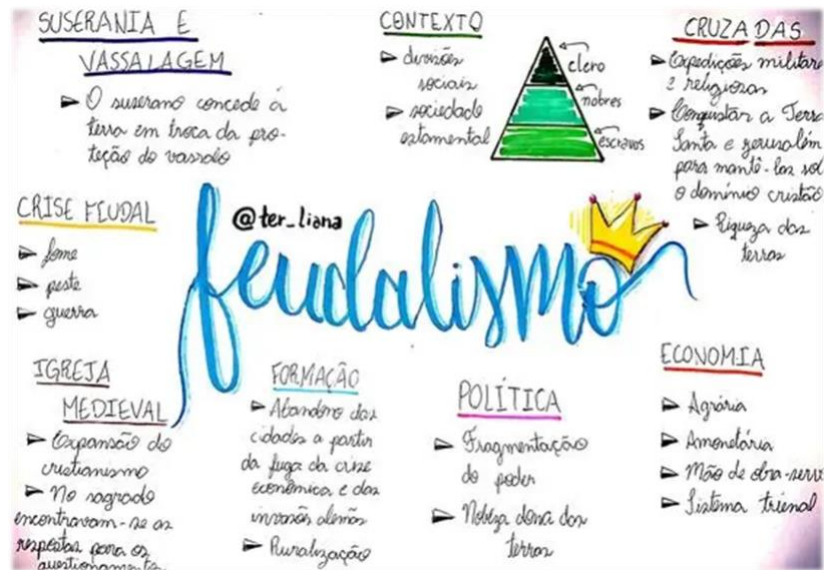 SUSERANIA E
VASSALAGEM
O suserano concede a
terra em troca da pro-
teção do vassalo
CONTEXTO
divisões
sociais
sociedade
estamental
clero
nobres
escravos
CRUZADAS
Expedições militare
e religiosas
Conquistar a Terra
Santa e Jerusalém
para mantê-las sob
o domínio cristão
Riqueza das
terras
CRISE FEUDAL
fome
peste
guerra
@ter_liana
feudalismo
IGREJA
MEDIEVAL
Expansão do
cristianismo
No sagrado
encontravam-se as
respostas para os
questionamentos
FORMAÇÃO
Abandono das
cidades a partir
da fuga da crise
econômica e das
invasões alemãs
Ruralização
POLÍTICA
Fragmentação
do poder
Nobreza dona das
terras
ECONOMIA
Agrária
Amonetária
Mão de obra-servi
Sistema trienal